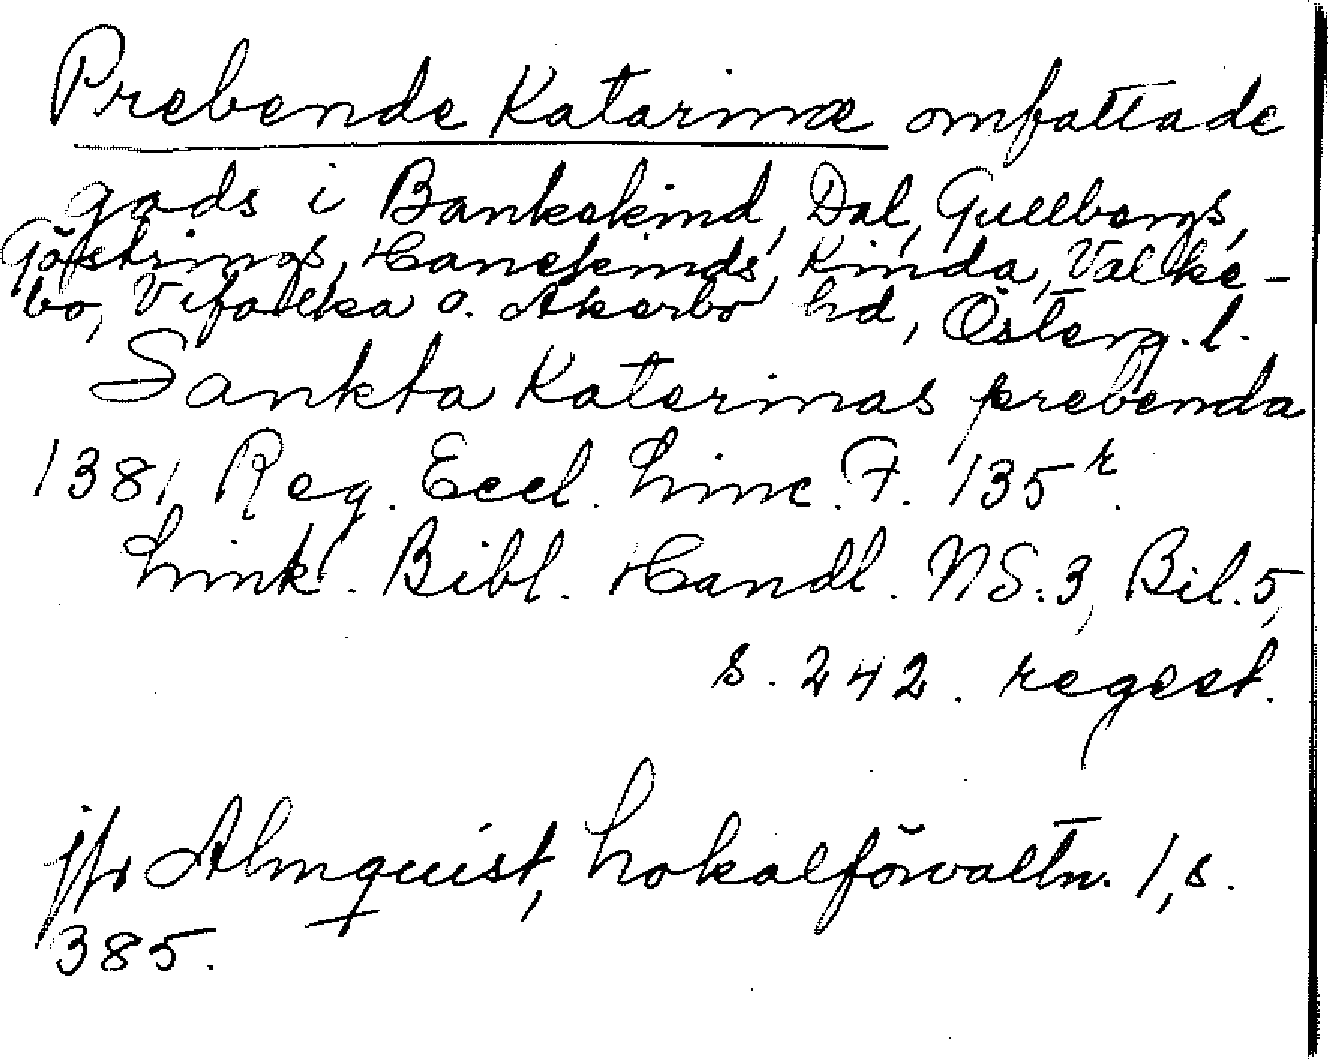 Prebende Katarinæ omfattade
gods i Bankekind, Dal, Gullbergs,
Göstrings, Hanekinds, Kinda, Valke-
bo, Vifolka o. Åkerbo hd, Österg. l.
Sankta Katerinas prebenda
1381 Reg. Eccl. Linc. F. 135r.
Link. Bibl. Handl. NS. 3, Bil. 5,
s. 242. regest.
jfr Almquist, Lokalförvaltn. 1, s.
385.